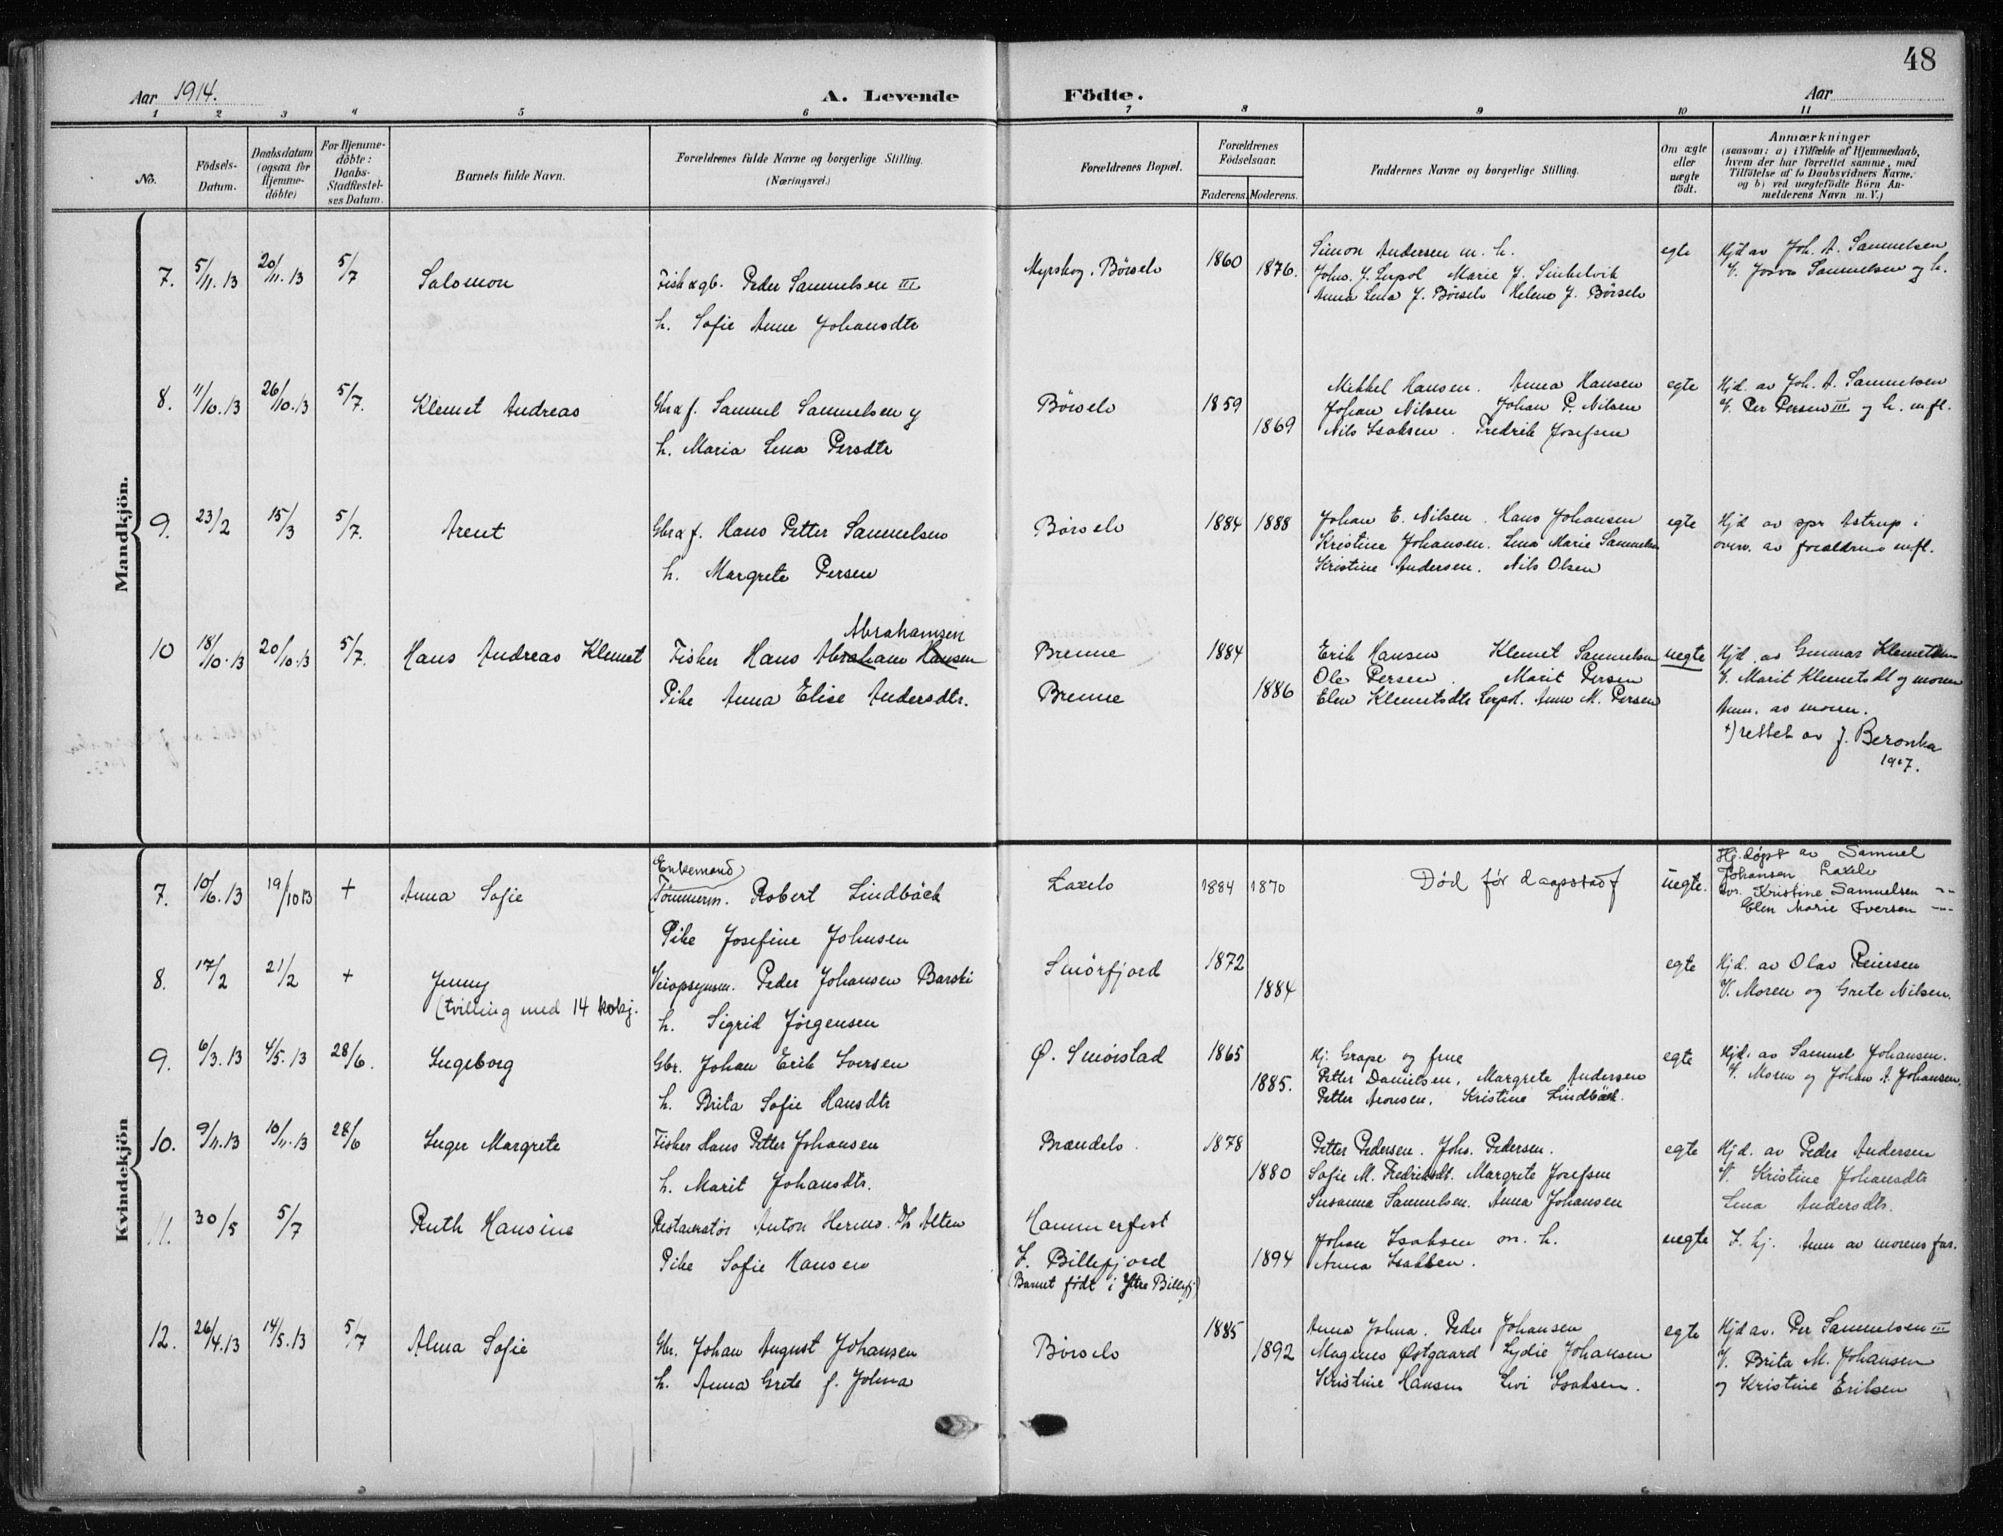 48
Aar 1914. A. Levende Födte. Aar
1 2 3 4 5 6 7 8 9 10 11
No. Födsels-Datum. Daabsdatum (ogsaa for Hjemmedöbte) For Hjemmedöbte: Daabs-Stadfæstelses Datum. Barnets fulde Navn. Forældrenes fulde Navne og borgerlige Stilling. (Næringsvei.) Forældrenes Bopæl. Forældrenes Födselsaar. Faderens. Moderens. Faddernes Navne og borgerlige Stilling. Om ægte eller uægte födt. Anmærkninger (saasom: a) i Tilfælde af Hjemmedaab, hvem der har forrettet samme, med Tilföielse af to Daabsvidners Navne. og b) ved uægtefödte Börn Anmelderens Navn m. V.)
Mandkjön.
7. 5/11.13 20/11.13 5/7 Salomon Fisk & gb. Peder Samuelsen III Myrskog, Børselv 1860 1876. Simon Andersen m. h. egte Hjd av Joh. A. Samuelsen
Johs. J. Marie J.
V. Samuelsen og h.
Anna Lena J. Børselv Helena J. Børselv
h. Sofie Anne Johansdtr
8. 11/10.13 26/10.13 5/7. Klemet Andreas Gbr & f. Samuel Samuelsen y Børselv 1859 1869 Mikkel Hansen. Anna Hansen egte Hjd. av Joh. A. Samuelsen
Johan Nilsen Johan P. Nilsen
V. Per Persen III og h. mfl.
h. Maria Lena Persdtr
Nils Isaksen. Fredrik Josefsen
9. 23/2 15/3 5/7. Arent Gbr & f. Hans Petter Samuelsen Børselv 1884 1888 Johan E. Nilsen. Hans Johansen egte Hjd av spr Astrup i
Kristine Johansen. Lena Marie Samuelsen
overv. av forældrene mfl.
h. Margrete Persen
Kristine Andersen. Nils Olsen
10 18/10.13 20/10.13 5/7. Hans Andreas Klemet Fisker Hans Abraham Hansen Abrahamsen Brenne 1884 Erik Hansen Klemet Samuelsen uegte Hjd. av Gunnar Klemetsen
Ole Persen. Marit Persen
V. Marit Klemetsdt og moren
Pike Anna Elise Andersdtr. Brenne 1886 Elen Klemetsdtr Anne M. Persen
Anm. av moren.
+) rettet av J. Beronka
1917.
Kvindekjön
7. 10/6.13 19/10 13 + Anna Sofie Enkemand Tömmerm. Robert Lindbäck Laxelv 1884 1870 Død før daapstadf uegte. Hj. døpt av Samuel
Johansen Laxelv
Kristine Samuelsen -"-
Elen Marie Iversen -"-
Pike Josefine Johnsen
8. 17/2 21/2 + Jenny Veiopsynsm. Peder Johansen Barski Smörfjord 1872 1884 egte Hjd. av Olav Reiersen
(tvilling med 14 kvkj.
V. Moren og Grete Nilsen.
h. Sigrid Jörgensen
9. 6/3.13 4/5.13 28/6. Ingeborg Gbr. Johan Erik Iversen Ø. Smörstad 1865 1885. Hj. Grape og frue egte Hjd. av Samuel Johansen.
Petter Danielsen. Margrete Andersen
V. Moren og Johan A. Johansen.
h. Brita Sofie Hansdtr
Petter Aronsen. Kristine Lindbäck.
10. 9/11.13 10/11.13 28/6 Inger Margrete Fisker Hans Petter Johansen Brændelv. 1878 1880 Petter Pedersen. Johs. Pedersen. egte Hjd. av Peder Andersen
Sofie M. Fredriksdt. Margrete Josefsen
V. Kristine Johansdtr
h. Marit Johansdtr.
Susanna Samuelsen. Anna Johansen
Lena Andersdtr.
11. 30/5 5/7 Ruth Hansine Restauratör Anton Herms. Th Alten Hammerfest Johan Isaksen m. h. uegte I. hj. Anm av morens far.
Pike Sofie Hansen I. Billefjord 1894 Anna Isaksen.
(Barnet födt i Ytre Billefj)
12. 26/4.13 14/5.13 5/7 Alma Sofie Gbr. Johan August Johansen Børselv 1885 1892 Anna Johna. Peder Johansen egte Hjd av. Per Samuelsen III
Magnus Østgaard Lydie Johansen
V. Brita M. Johansen
h. Anna Grete f. Johna
Kristine Hansen Levi Isaksen.
og Kristine Eriksen